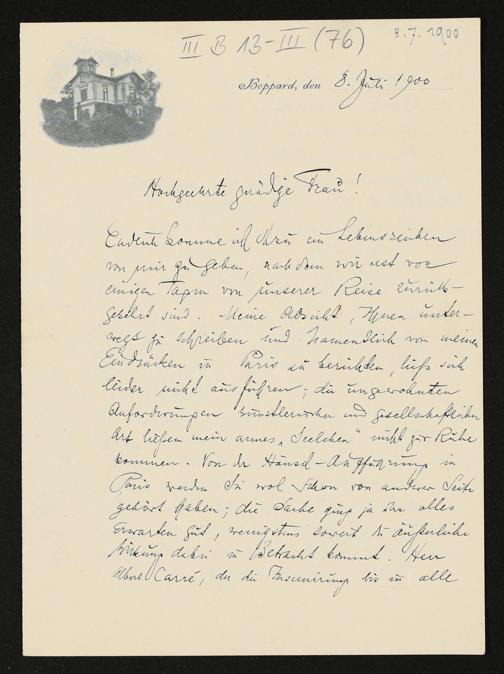 III B 13-III (76)
8.7.1900
Boppard, den 8. Juli 1900
Hochgeehrte gnädige Frau!
Endlich komme ich dazu ein Lebenszeichen
von mir zu geben, nachdem wir erst vor
einigen Tagen von unserer Reise zurück-
gekehrt sind. Meine Absicht, Ihnen unter-
wegs zu schreiben und namentlich von meinen
Eindrücken in Paris zu berichten, ließ sich
leider nicht ausführen; die ungewohnten
Anforderungen künstlerischer und gesellschaftlicher
Art ließen mein armes „Seelchen" nicht zur Ruhe
kommen. Von der Hänsel-Aufführung in
Paris werden Sie wol schon von anderer Seite
gehört haben; die Sache ging ja über alles
Erwarten gut, wenigstens soweit die äußerliche
Wirkung dabei in Betracht kommt. Herr
Albert Carré, der die Inscenirung bis in alle